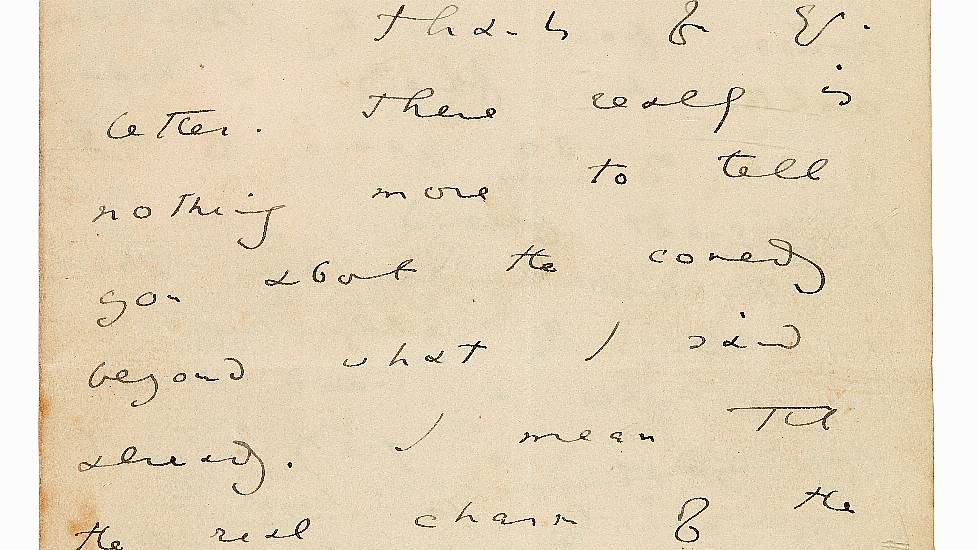 Thanks for yr.
letter. There really is
nothing more to tell
you about the comedy
beyond what I said
already. I mean that
the real charm of the